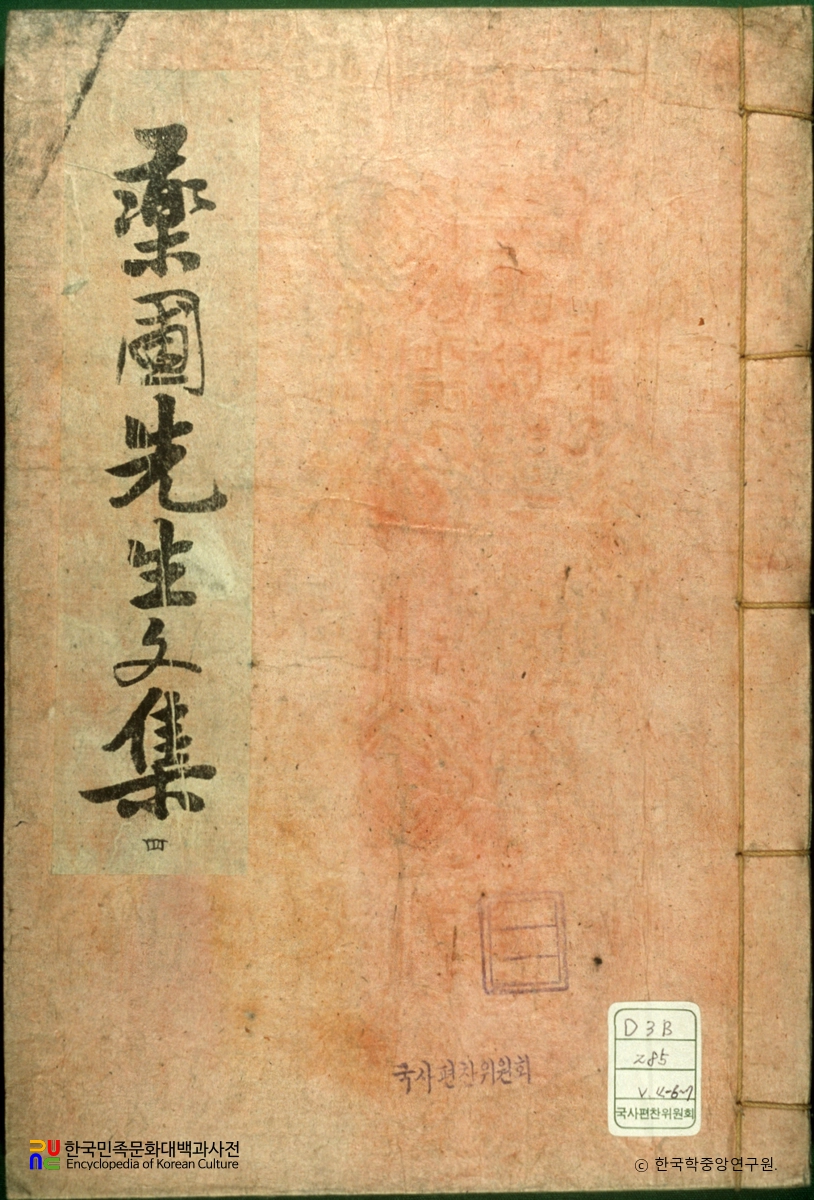 藥圃先生文集
四
국사편찬위원회
D3B
285
v.4-6-7
국사편찬위원회
한국민족문화대백과사전
Encyclopedia of Korean Culture
© 한국학중앙연구원.